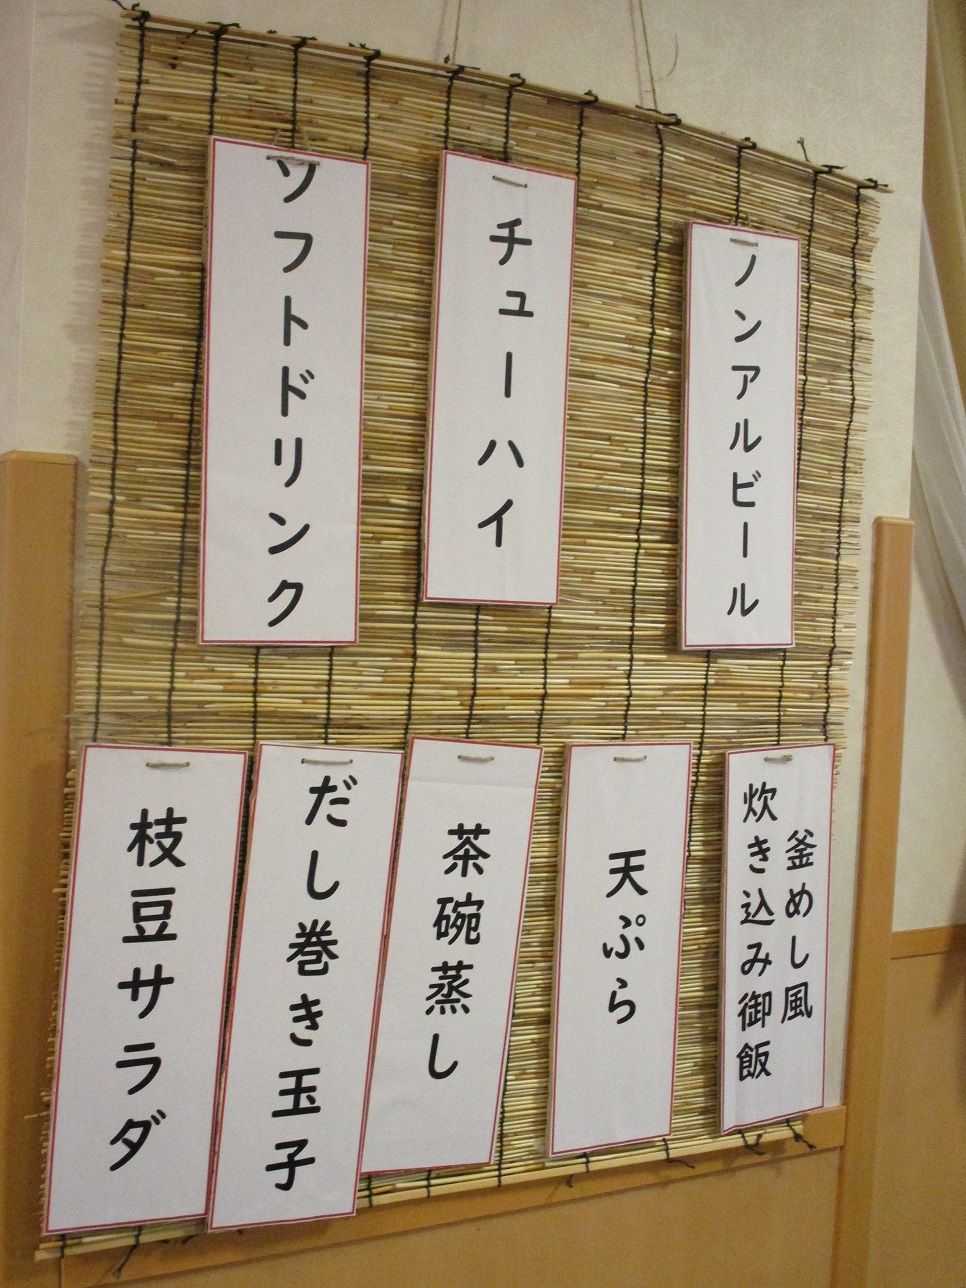 ノンアルビール
チューハイ
ソフトドリンク
釜めし風
炊き込み御飯
天ぷら
茶碗蒸し
だし巻き玉子
枝豆サラダ